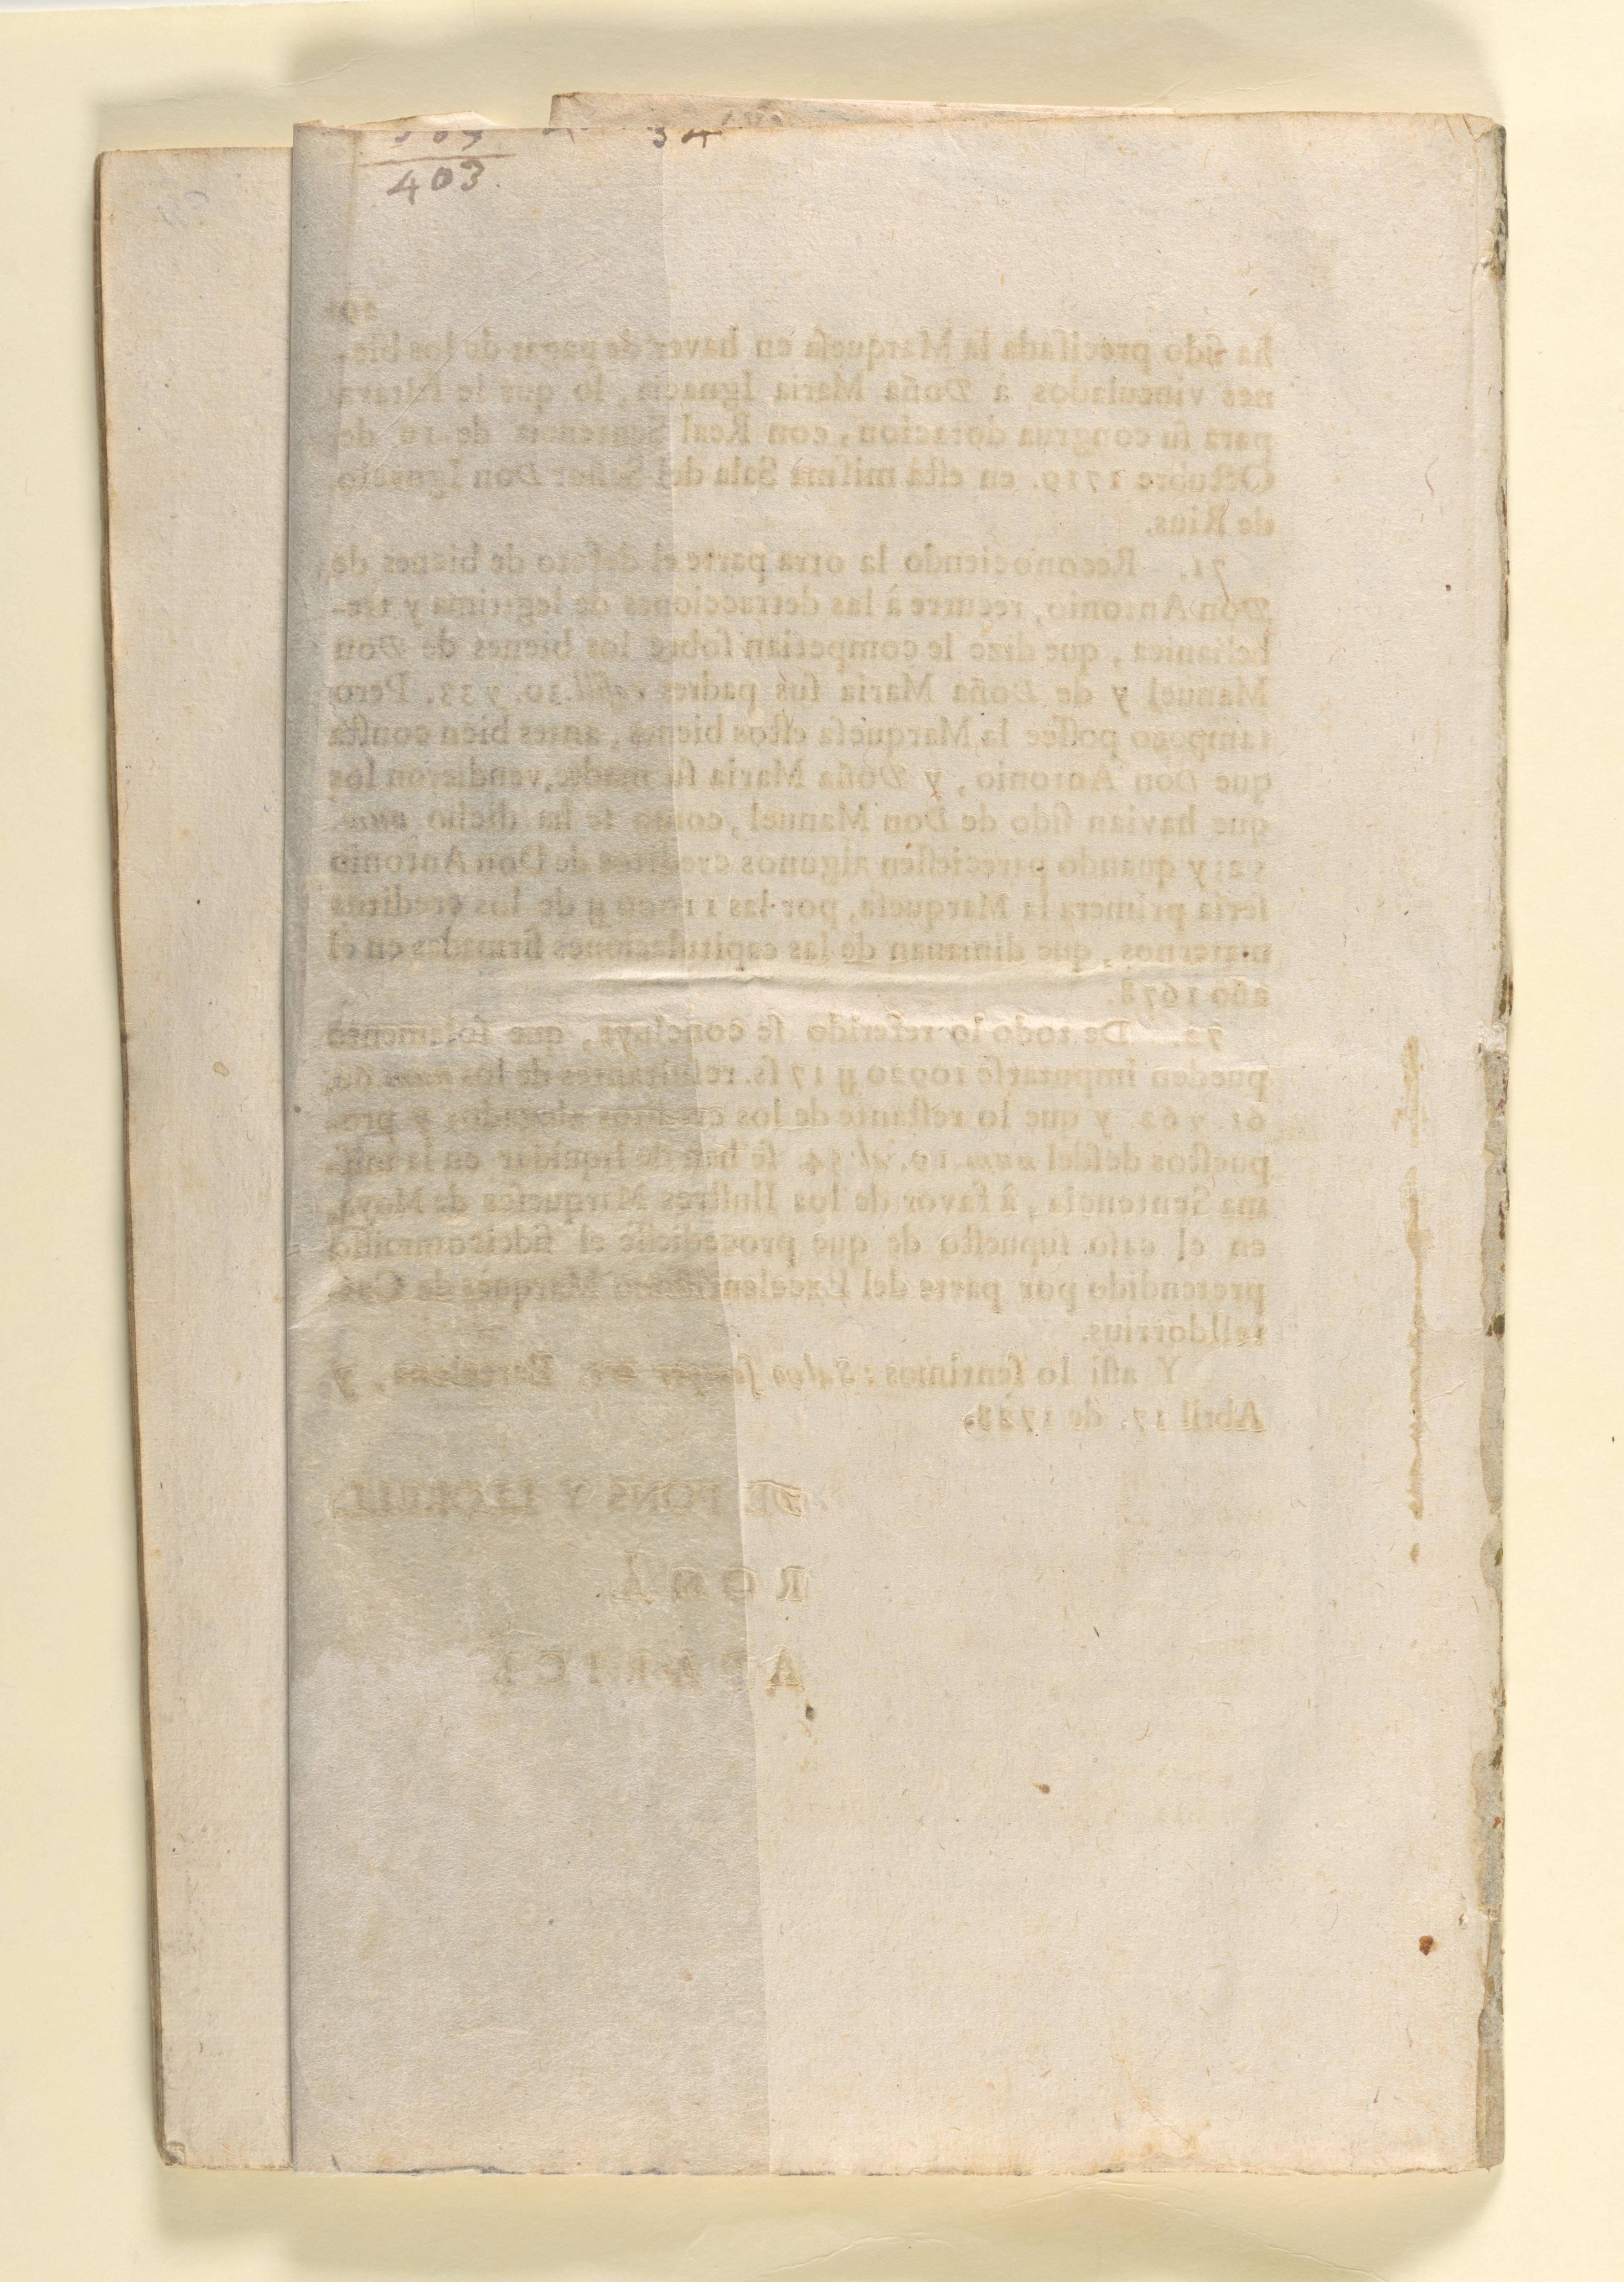 403.
34
ha ſido preciſada la Marqueſa en haver de pagar de los bie-
nes vinculados à Doña Maria Ignacia, lo que le faltava
para ſu congrua dotacion, con Real Sentencia de 10. de
Octubre 1719. en eſta miſma Sala del Señor Don Ignacio
de Rius.
71. Reconociendo la otra parte el defeto de bienes de
Don Antonio, recurre à las detracciones de legitima y tre-
belianica, que dize le competian ſobre los bienes de Don
Manuel y de Doña Maria ſus padres 30. y 33. Pero
tampoco poſſee la Marqueſa eſtos bienes, antes bien conſta
que Don Antonio, y Doña Maria ſu madre, vendieron los
que havian ſido de Don Manuel, como ſe ha dicho num.
y quando pareciеſſen algunos creditos de Don Antonio
ſeria primera la Marqueſa, por las de los creditos
maternos, que dimanan de las capitulaciones firmadas en el
año 1678.
72. De todo lo referido ſe concluye, que ſolamente
pueden imputarſe 10920 ll 17 ſ. reſultantes de los num. 60.
61. y 62. y que lo reſtante de los creditos alegados y pro-
pueſtos deſdel num. 19. al 54. ſe han de liquidar en la miſ-
ma Sentencia, à favor de los Iluſtres Marqueſes de Moya,
en el caſo ſupueſto de que procedieſſe el fideicomiſſo
pretendido por parte del Excelentiſsimo Marquès de Caſ-
telldorrius.
Y aſſi lo ſentimos: Salvo ſemper &c. Barcelona, y
Abril 17. de 1728.
DE PONS Y LLORELL.
ROMÀ.
APARICI.